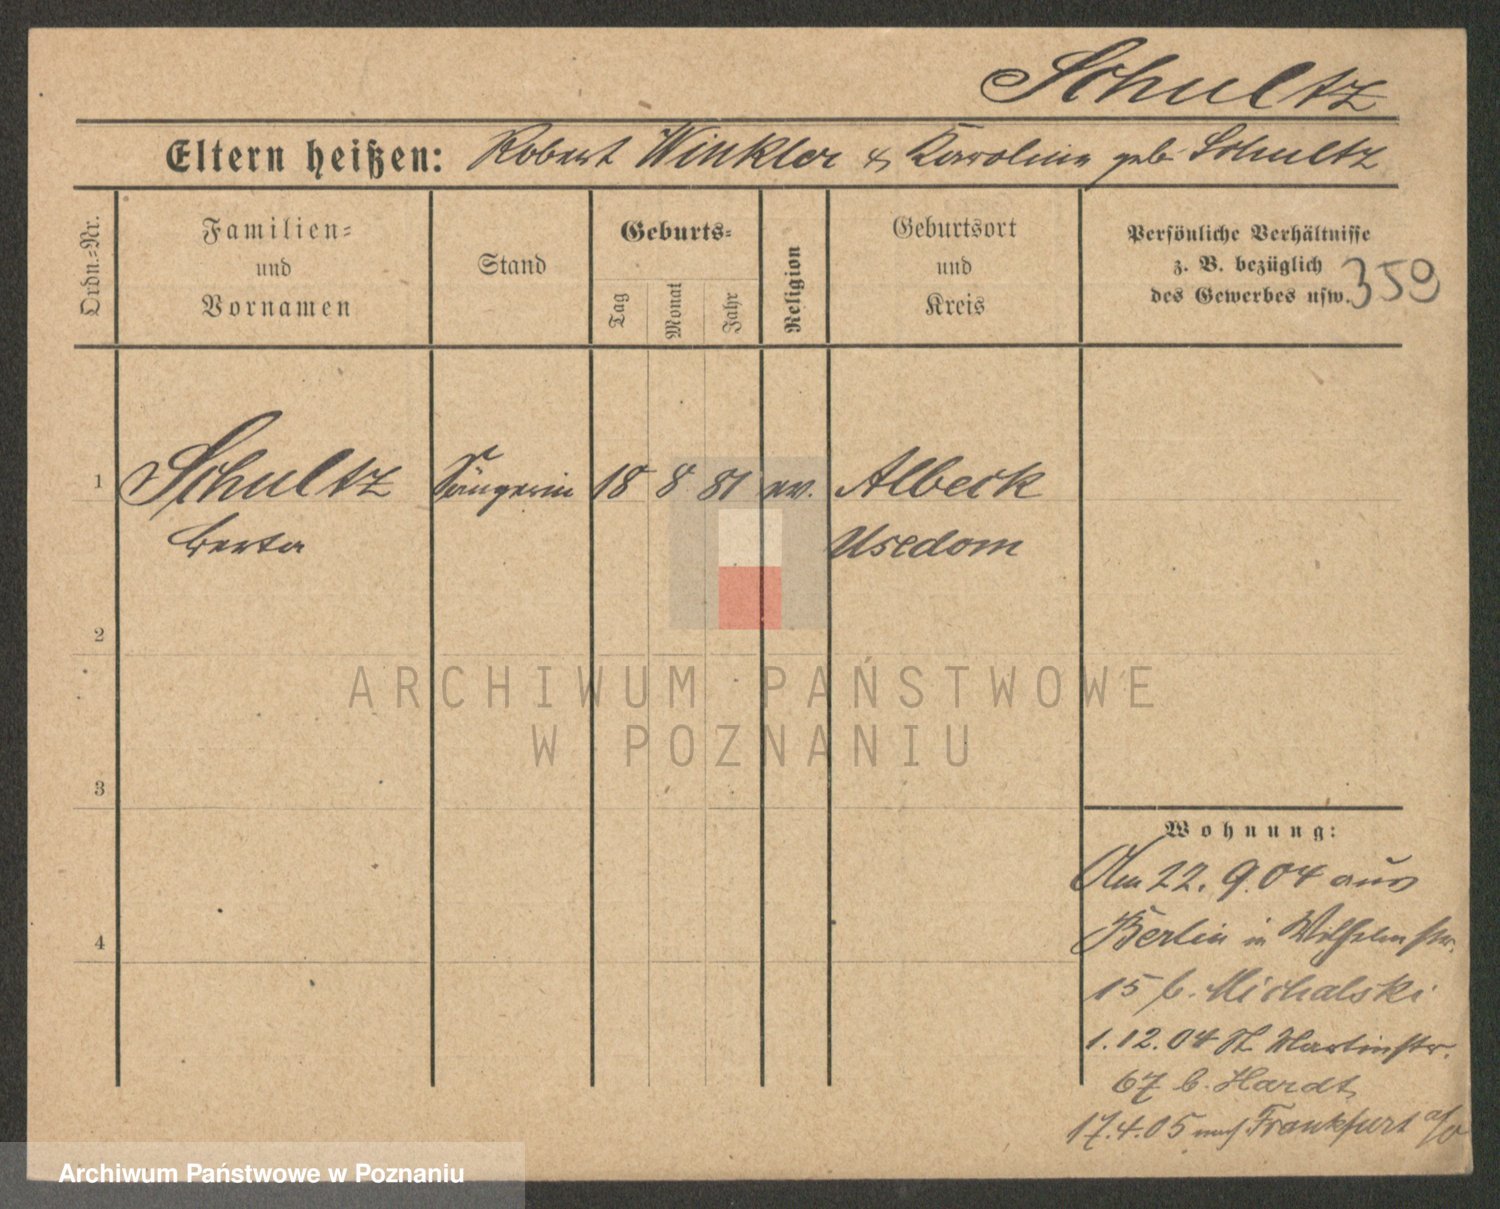 Schultz
Eltern heißen: Robert Winkler & Karoline geb. Schultz
Ordn.-Nr.
Familien-
und
Vornamen
Stand
Geburts-
Tag
Monat
Jahr
Religion
Geburtsort
und
Kreis
Persönliche Verhältnisse
z. B. bezüglich
des Gewerbes usw.
359
1 Schultz Sängerin 18 8 81 ev. Albeck
Berta Usedom
2
3
4
Wohnung:
Am 22. 9.04 aus
Berlin in Wilhelmstr.
15 b. Michalski
1.12.04 St. Martinstr.
67 b. Hardt
17.4.05 nach Frankfurt a/O
ARCHIWUM PAŃSTWOWE
W POZNANIU
Archiwum Państwowe w Poznaniu